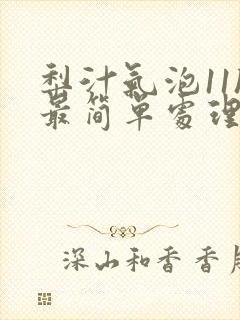 梨汁氣泡11
最简單處理
深山和香香